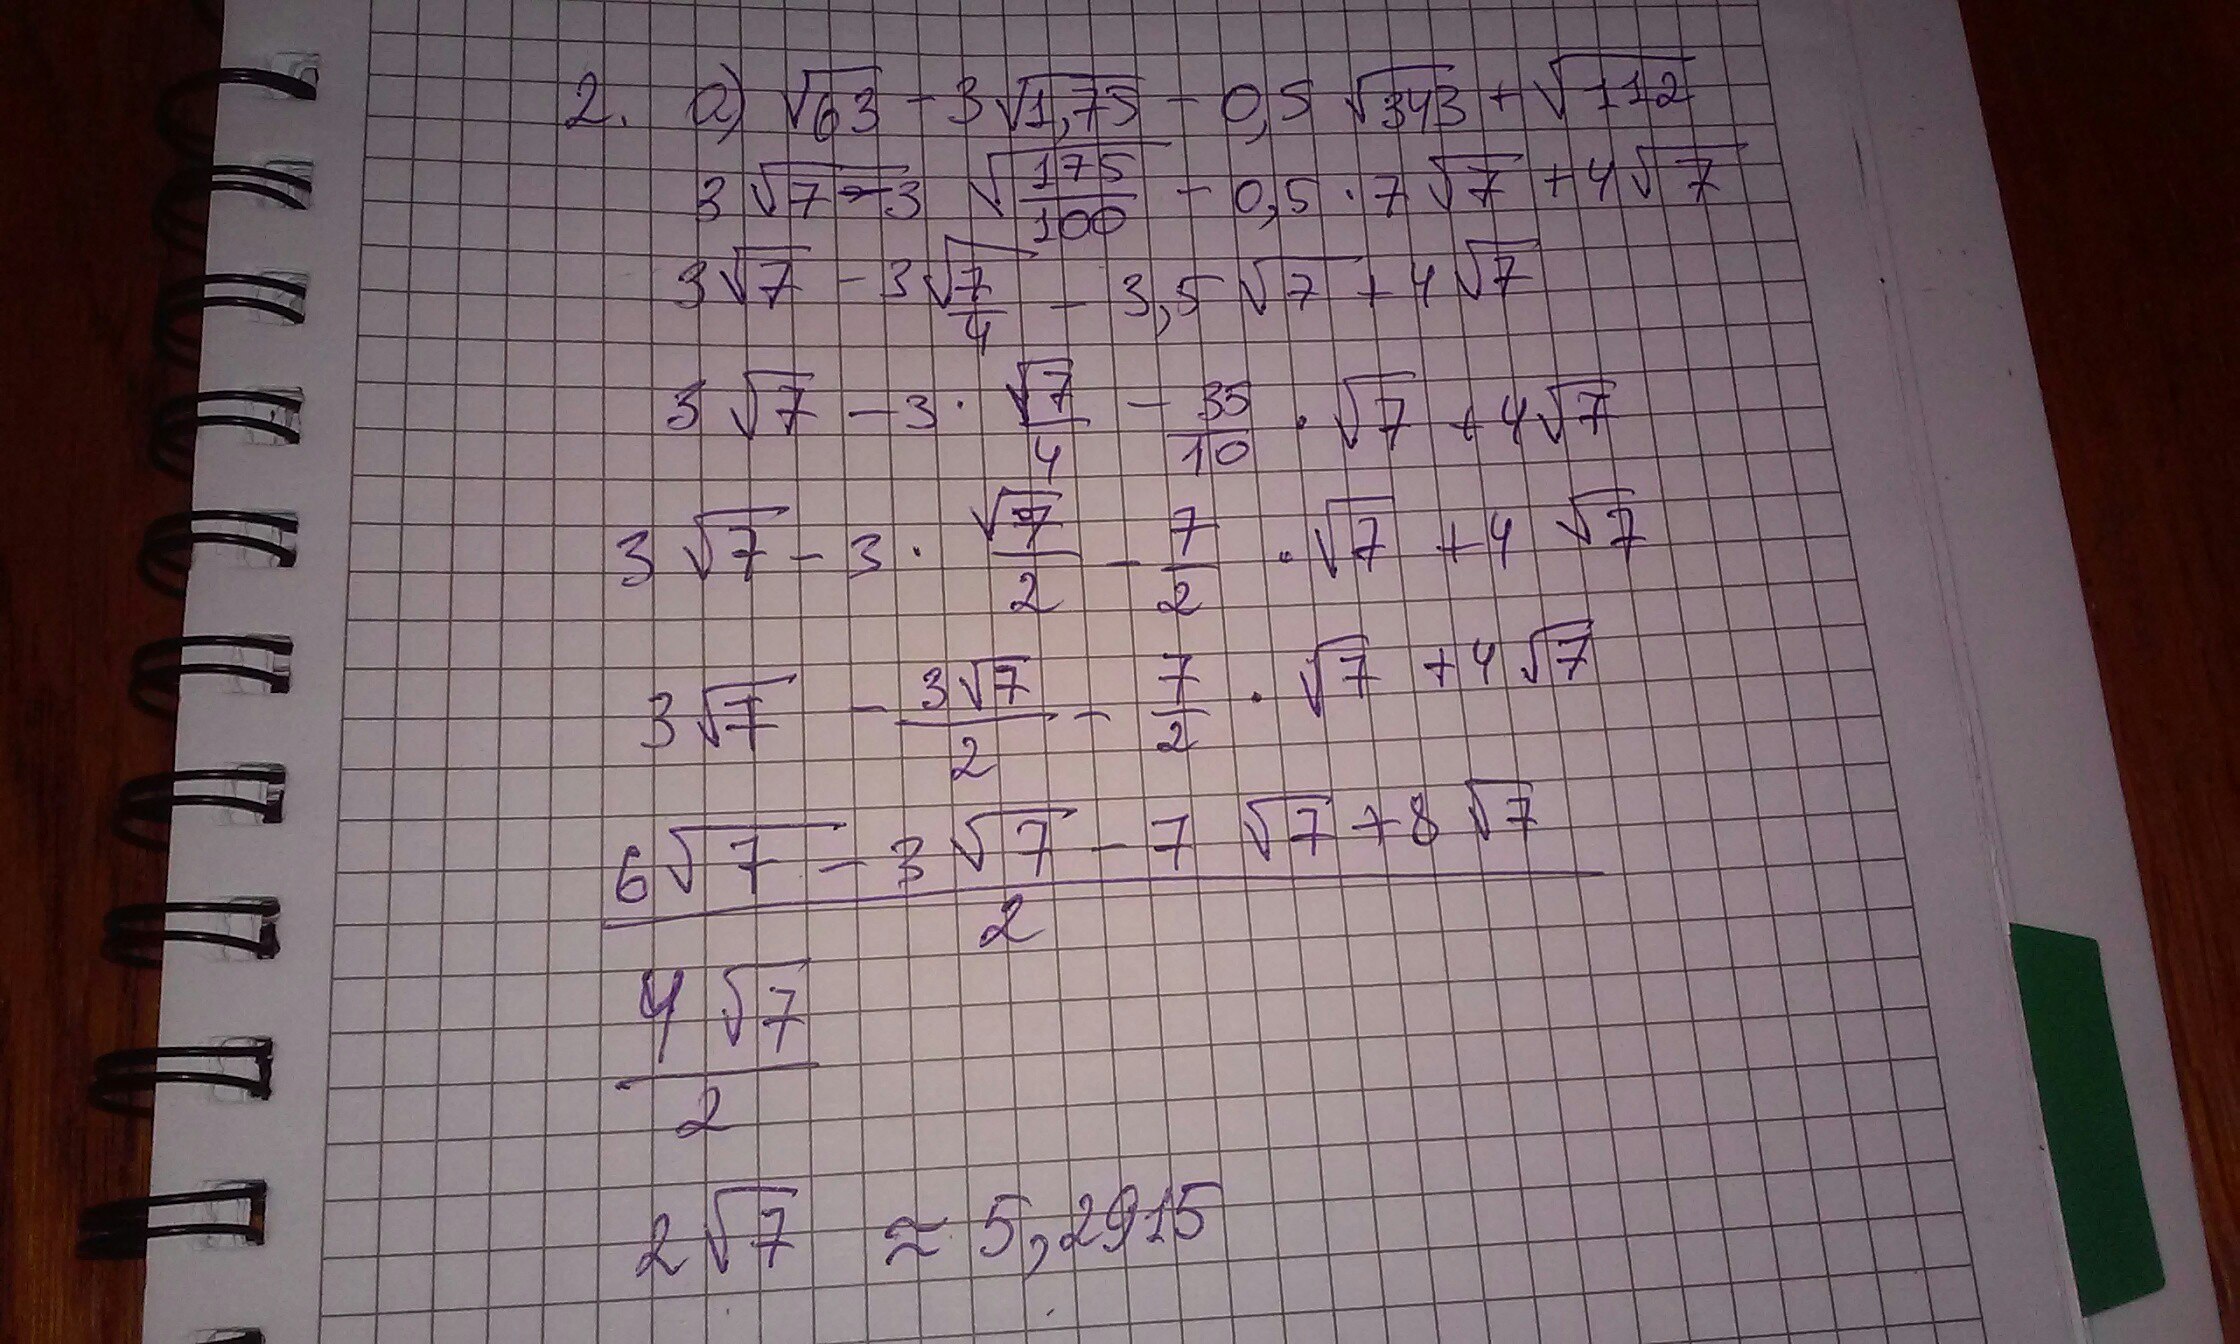 2. а) √63 - 3√1,75 - 0,5 √343 + √112
3 √7 - 3 √175/100 - 0,5 · 7 √7 + 4 √7
3 √7 - 3 √7/4 - 3,5 √7 + 4 √7
3 √7 - 3 · √7/4 - 35/10 · √7 + 4 √7
3 √7 - 3 · √7/2 - 7/2 · √7 + 4 √7
3 √7 - 3√7/2 - 7/2 · √7 + 4 √7
6 √7 - 3 √7 - 7 √7 + 8 √7
2
4 √7
2
2 √7 ≈ 5,2915